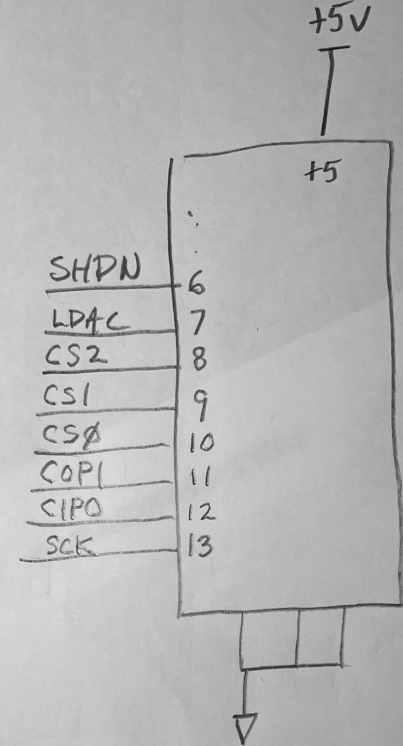 +5V
+5
SHDN 6
LDAC 7
CS2 8
CS1 9
CSØ 10
COPI 11
CIPO 12
SCK 13